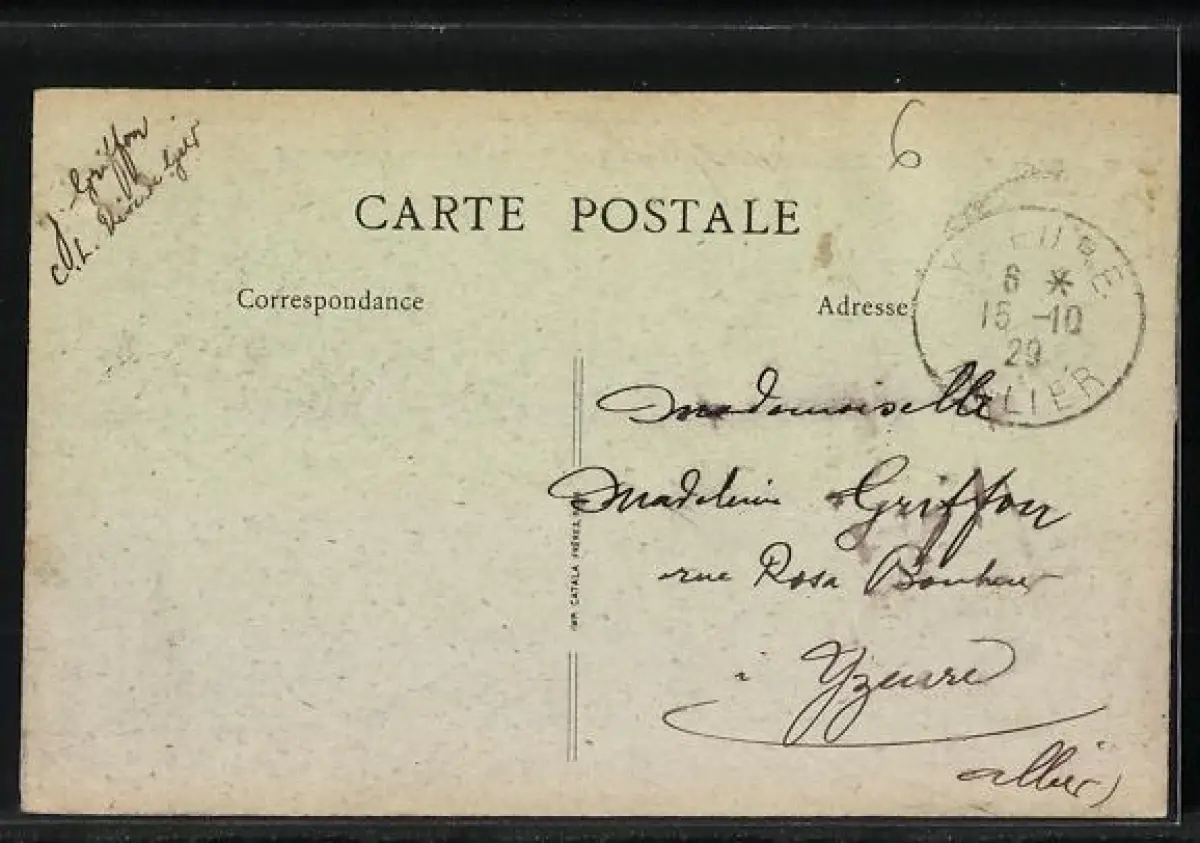 J. Griffon
C.L. Rive de Gier
6
CARTE POSTALE
Correspondance
Adresse
YZEURE
6 *
15 -10
20
ALLIER
Mademoiselle
Madeleine Griffon
rue Rosa Bonheur
à Yzeure
allier)
IMP. CATALA FRÈRES,